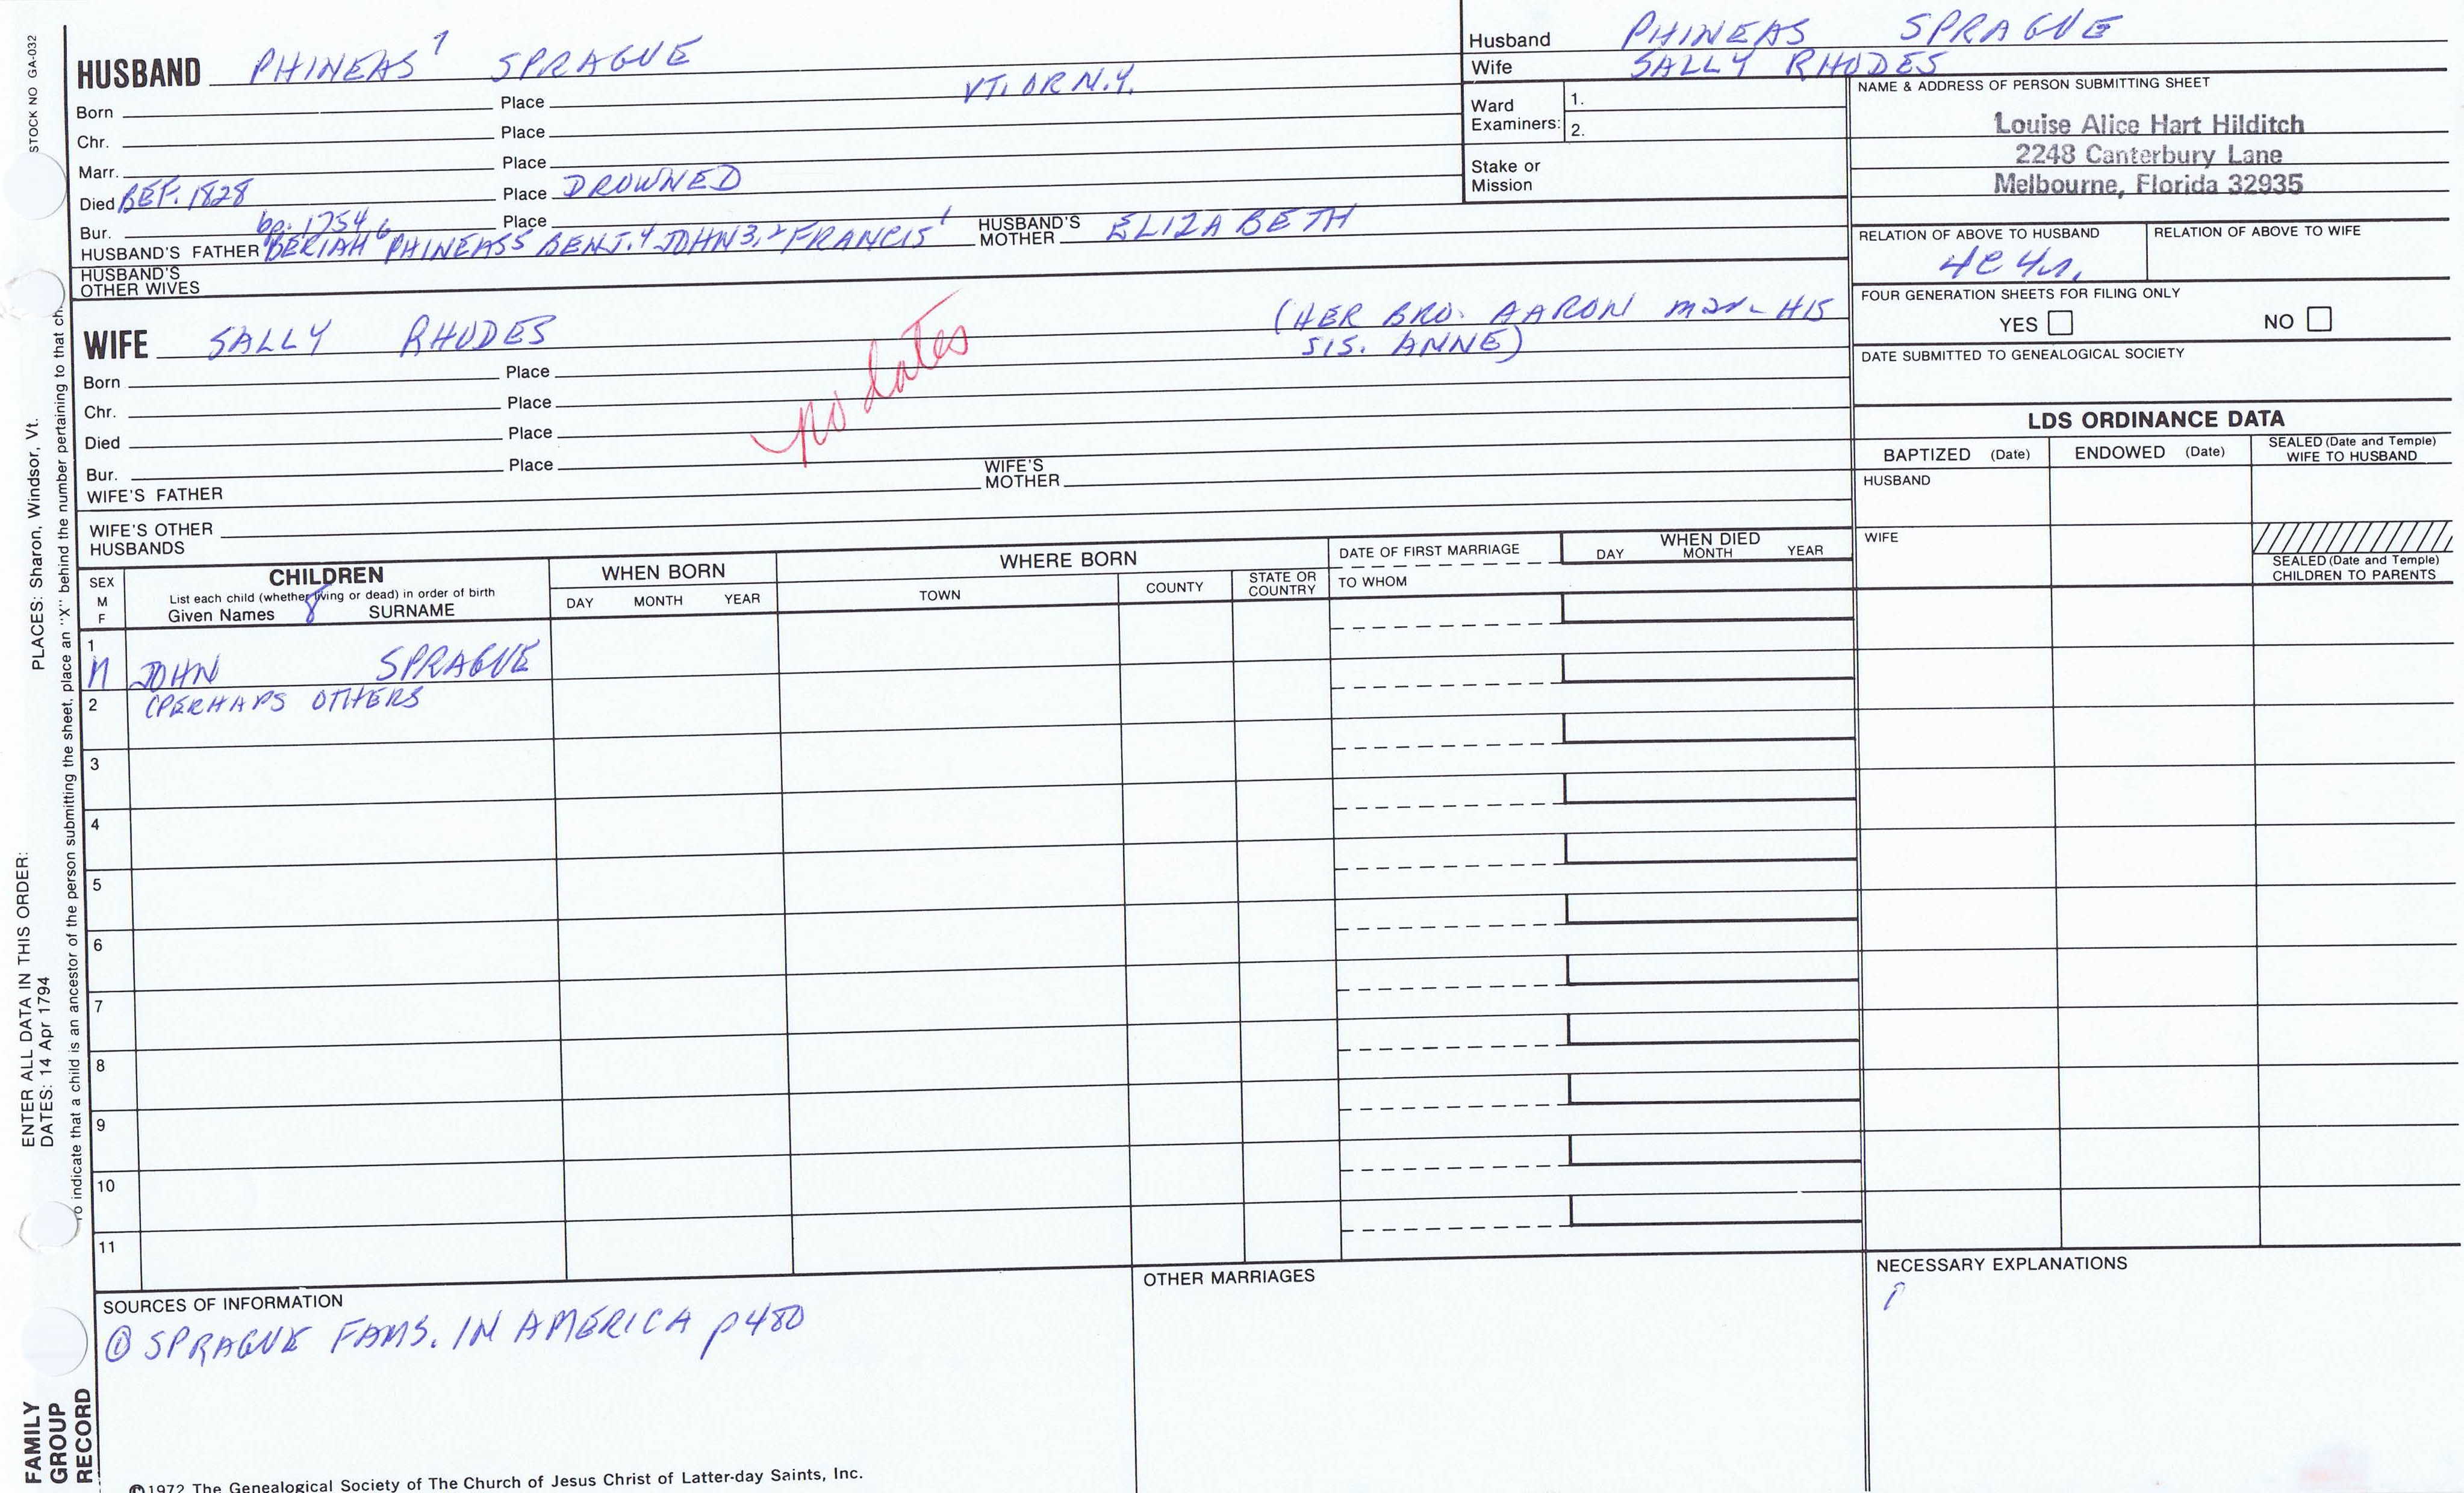 STOCK NO GA-032
PLACES: Sharon, Windsor, Vt.
ENTER ALL DATA IN THIS ORDER:
DATES: 14 Apr 1794
To indicate that a child is an ancestor of the person submitting the sheet, place an "X" behind the number pertaining to that ch
FAMILY
GROUP
RECORD
HUSBAND PHINEAS 7 SPRAGUE
Born Place VT. OR N.Y.
Chr. Place
Marr. Place
Died BEF. 1828 Place DROWNED
Bur. bp. 1754 Place
HUSBAND'S FATHER BERIAH 6 PHINEAS 5 BENJ. 4 JOHN 3, 2 FRANCIS 1 HUSBAND'S MOTHER ELIZABETH
HUSBAND'S
OTHER WIVES
Husband PHINEAS SPRAGUE
Wife SALLY RHODES
Ward
Examiners: 1.
2.
Stake or
Mission
NAME & ADDRESS OF PERSON SUBMITTING SHEET
Louise Alice Hart Hilditch
2248 Canterbury Lane
Melbourne, Florida 32935
RELATION OF ABOVE TO HUSBAND RELATION OF ABOVE TO WIFE
FOUR GENERATION SHEETS FOR FILING ONLY
YES NO
DATE SUBMITTED TO GENEALOGICAL SOCIETY
WIFE SALLY RHODES (HER BRO. AARON mar HIS
SIS. ANNE)
no dates
Born Place
Chr. Place
Died Place
Bur. Place
WIFE'S FATHER WIFE'S MOTHER
WIFE'S OTHER
HUSBANDS
LDS ORDINANCE DATA
BAPTIZED (Date) ENDOWED (Date) SEALED (Date and Temple)
WIFE TO HUSBAND
HUSBAND
WIFE
SEALED (Date and Temple)
CHILDREN TO PARENTS
SEX
M
F
CHILDREN
List each child (whether living or dead) in order of birth
Given Names 8 SURNAME
WHEN BORN
DAY MONTH YEAR
WHERE BORN
TOWN COUNTY STATE OR
COUNTRY
DATE OF FIRST MARRIAGE
TO WHOM
WHEN DIED
DAY MONTH YEAR
1
M JOHN SPRAGUE
2 (PERHAPS OTHERS
3
4
5
6
7
8
9
10
11
SOURCES OF INFORMATION
① SPRAGUE FAMS. IN AMERICA p480
OTHER MARRIAGES
NECESSARY EXPLANATIONS
©1972 The Genealogical Society of The Church of Jesus Christ of Latter-day Saints, Inc.